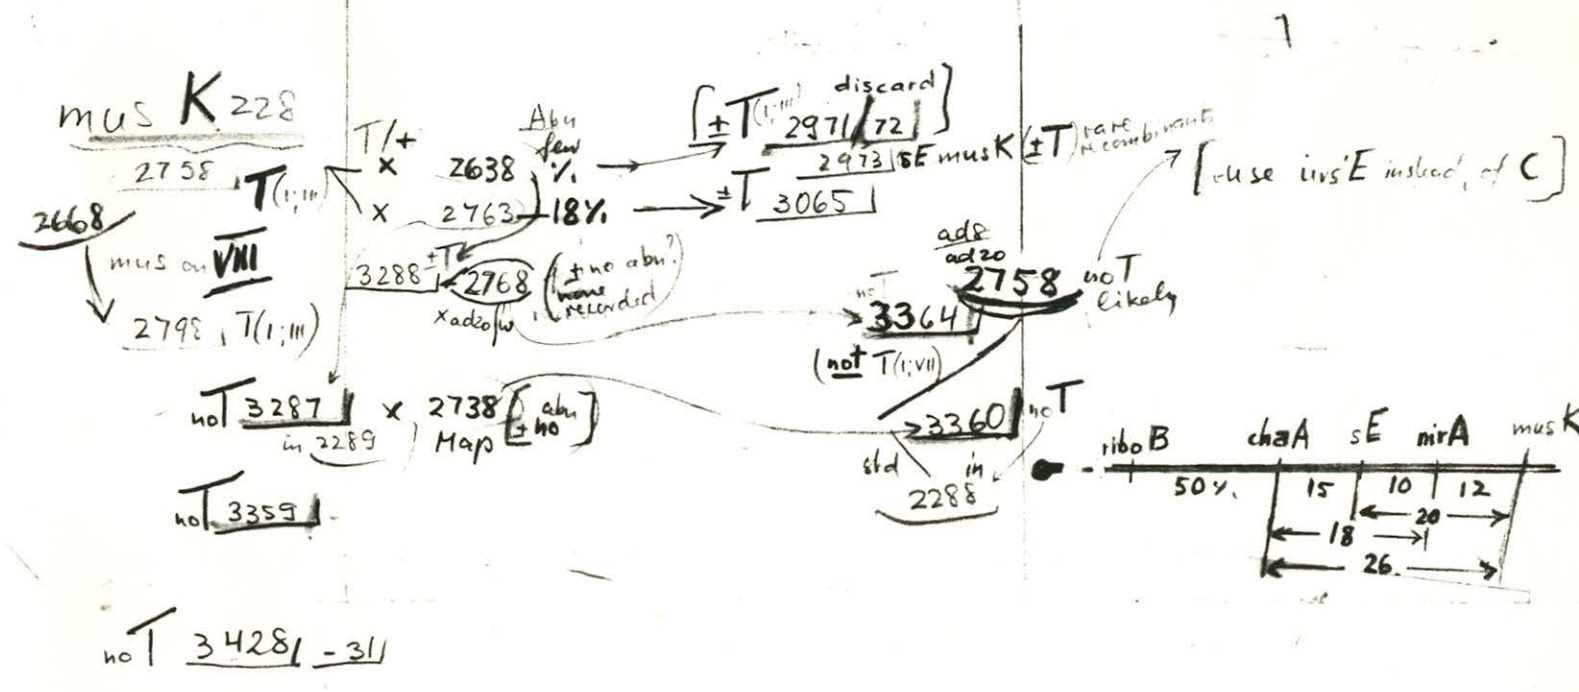 mus K 228
2758, T(I;III)
2668
mus on VIII
2798, T(I;III)
T/+
x 2638
Abn
few
%
x 2763 18%
[±T(I;III) 2971/72] discard
2973 sE musK (±T) rare recombinants
±T 3065
[use instead of C]
±T
3288 2768 (± no abn?
none
recorded)
x ad20
ad8
ad20
2758 no T
likely
no T
3364
(not T(I;VII))
no T 3287 x 2738 [abn
± no]
in 2289 Map
3360 no T
std in
2288
no T 3359
riboB chaA sE nirA musK
50%. 15 10 12
20
18
26
no T 3428 - 31